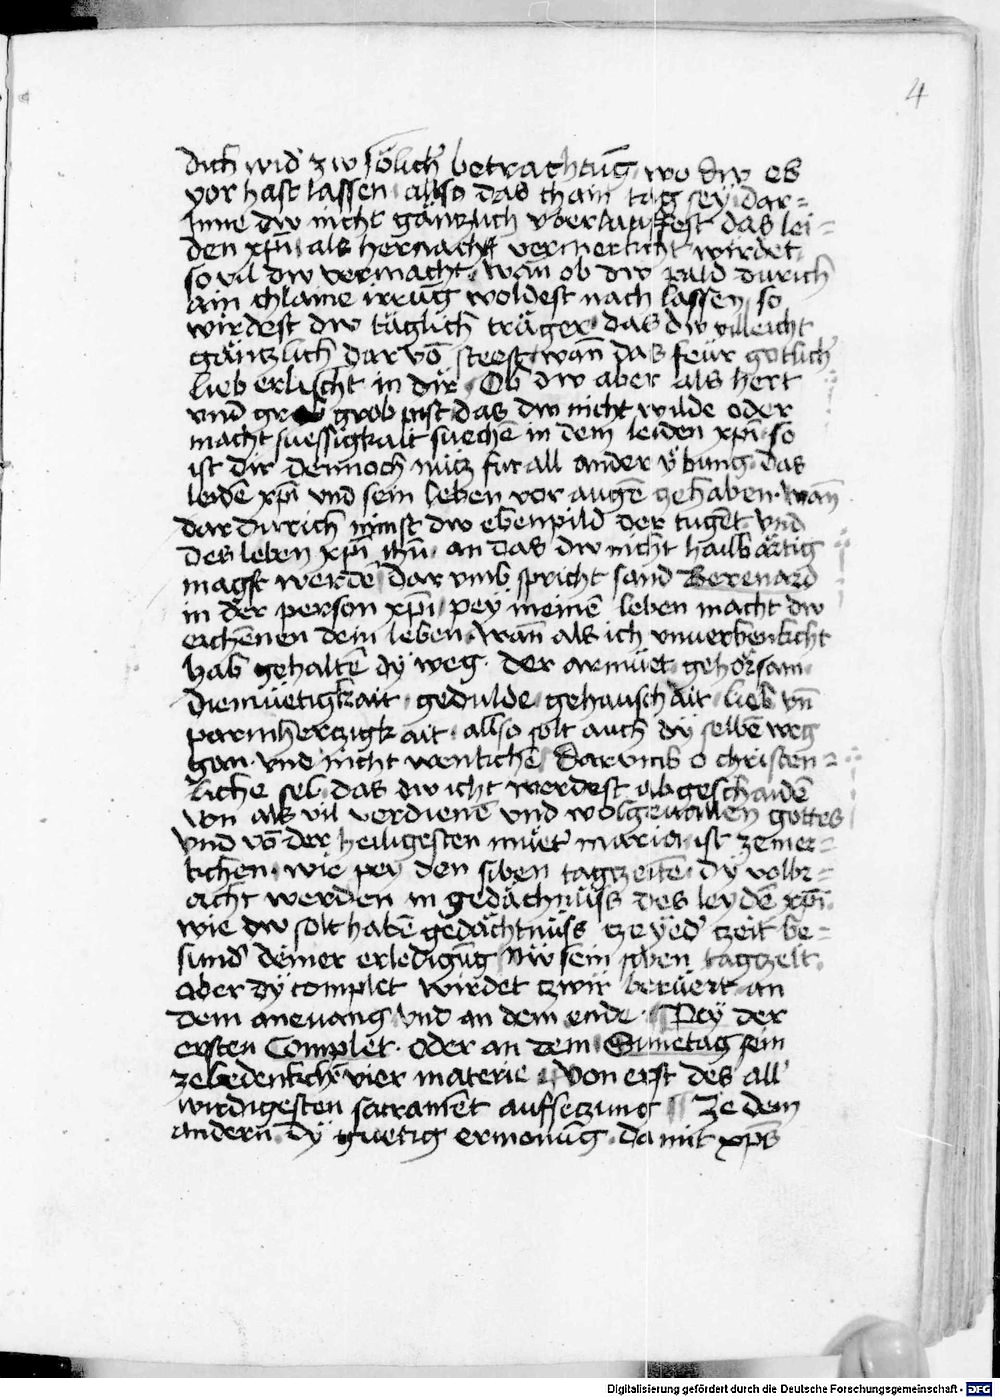 4
dich wid' zw sölich' betrachtūg wo dw es
vor hast lassen · allso das chain tag sey dar=
Inne dw nicht gänczlich vberlauffest das lei=
den xp̄i · als hernach vermerkcht wirdet
so vil dw vermacht · wan̄ ob dw pald durich
ain chlaine irrūg woldest nach lassen · so
wirdest dw täglich träger · das dw villeicht
gäntzlich dar vō steest · wan̄ das feür gotlich'
lieb erlischt in dir · Ob dw aber als hert
vnd grob pist das dw nicht wilde oder
macht suessigkait suechē in dem leiden xp̄i · so
ist dir dennoch nücz fur all ander v̈bung · das
leidē xp̄i vnd sein leben vor augē zehaben · wan̄
dar durich nimst dw ebenpild der tugēt · vnd
des leben xp̄i ih̄u · an das dw nicht hailbärtig
magst werdē dar vmb spricht sand Berenard
in der person xp̄i · pey meinē leben macht dw
erchennen dein leben · wan̄ als ich vnuerkenkcht
hab gehaltē dy weg · der armüet · gehörsam
Diemüetigkait · gedulde · gehauschait · lieb vn̄
parmherczigkait · allso solt auch dy selbē weg
gan · vnd nicht wenkchē Darumb o christen=
liche sel · das dw icht werdest abgeschaidē
von als vil verdienē vnd wolgeuallen gottes
vnd vō der heiligesten müet' maria · ist zemer=
kchen · wie pey den siben tagczeitē · dy volbr=
acht werden in gedächnüss des leydē xp̄i ·
wie dw solt habē gedächtnüss cze yed' czeit be=
sund' deiner erledigūg Nw sein siben tagczeit ·
aber dy complet wirdet czwir berüert · an
dem aneuang vnd an dem ende · Pey der
ersten Complet · oder an dem Sunetag sein
zebedenkchē vier materie · Von erst des all'
wirdigesten sacramēt aufseczung Ze dem
andern dy guetig ermonūg · da mit xp̄s
Digitalisierung gefördert durch die Deutsche Forschungsgemeinschaft - DFG